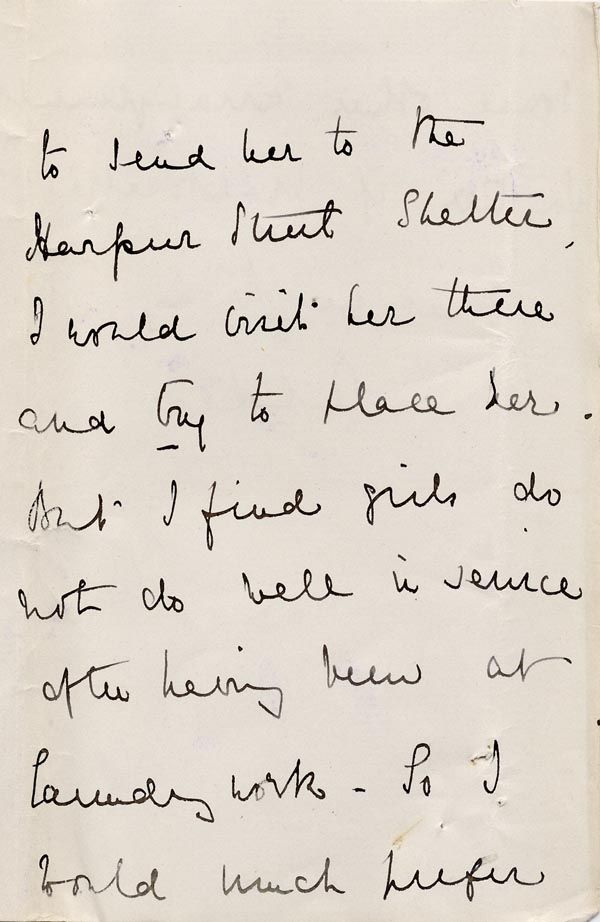 to send her to the
Harpur Street Shelter,
I would visit her there
and try to place her.
But I find girls do
not do well in service
after having been at
Laundry work - So I
would much prefer